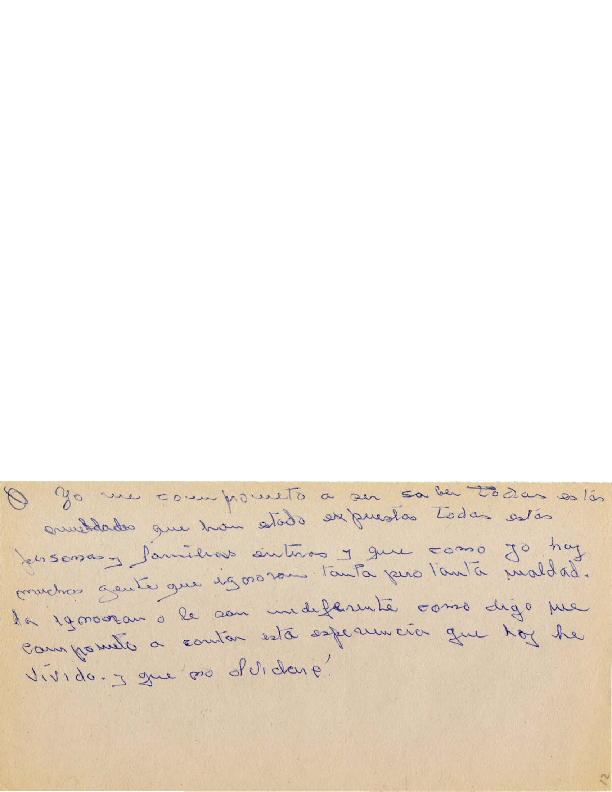 Yo me comprometo a ser saber todas estás
crueldades que han estado expuestas todas estás
personas y familias enteras y que como yo hay
muchos gente que ignoran tanta pero tanta maldad.
la ignoran o le son indeferente como digo me
comprometo a contar está esperiencia que hoy he
vivido. y que no olvidaré
12